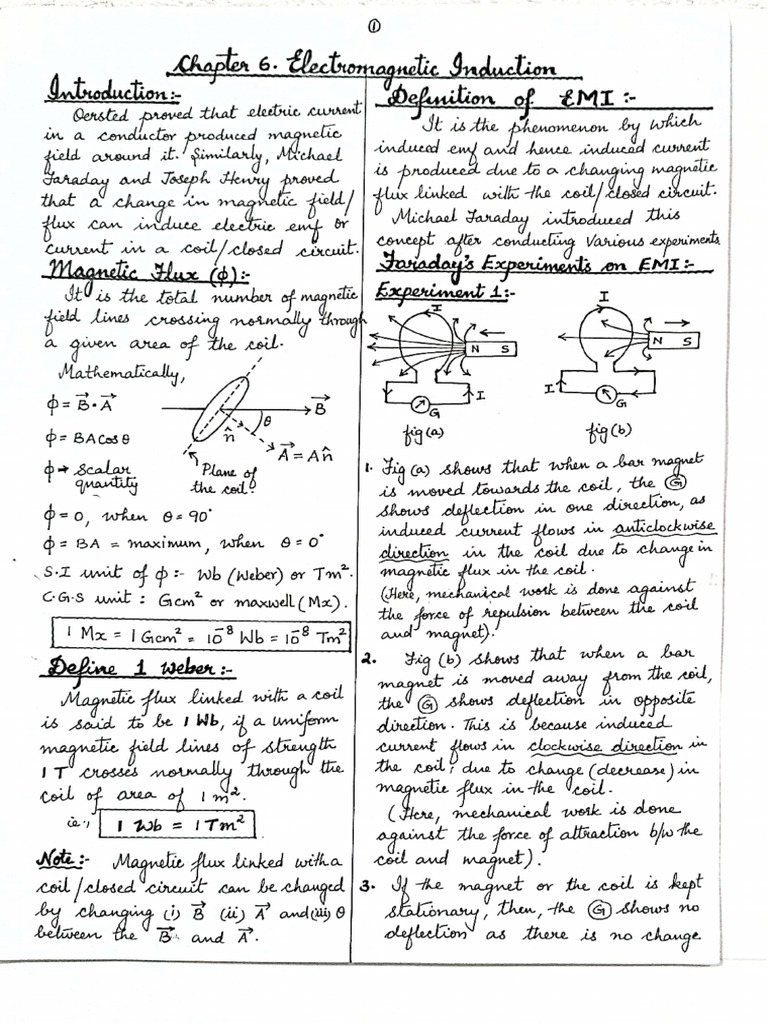 ①
Chapter 6. Electromagnetic Induction
Introduction:-
Oersted proved that electric current
in a conductor produced magnetic
field around it. Similarly, Michael
Faraday and Joseph Henry proved
that a change in magnetic field/
flux can induce electric emf or
current in a coil/closed circuit.
Magnetic Flux (ϕ):-
It is the total number of magnetic
field lines crossing normally through
a given area of the coil.
Mathematically,
ϕ = B⃗·A⃗
ϕ = BA cos θ
ϕ → Scalar
quantity
B⃗
θ
n̂
A⃗ = A n̂
Plane of
the coil.
ϕ = 0, when θ = 90°
ϕ = BA = maximum, when θ = 0°
S.I unit of ϕ :- Wb (Weber) or Tm².
C.G.S unit : Gcm² or maxwell (Mx).
1 Mx = 1 Gcm² = 10⁻⁸ Wb = 10⁻⁸ Tm²
Define 1 Weber:-
Magnetic flux linked with a coil
is said to be 1 Wb, if a uniform
magnetic field lines of strength
1 T crosses normally through the
coil of area of 1 m².
ie., 1 Wb = 1 Tm²
Note:- Magnetic flux linked with a
coil/closed circuit can be changed
by changing (i) B⃗ (ii) A⃗ and (iii) θ
between the B⃗ and A⃗.
Definition of EMI :-
It is the phenomenon by which
induced emf and hence induced current
is produced due to a changing magnetic
flux linked with the coil/closed circuit.
Michael Faraday introduced this
concept after conducting various experiments.
Faraday's Experiments on EMI:-
Experiment 1:-
I
N S
I
G
fig(a)
I
N S
I
G
fig(b)
1. Fig (a) shows that when a bar magnet
is moved towards the coil, the Ⓖ
shows deflection in one direction, as
induced current flows in anticlockwise
direction in the coil due to change in
magnetic flux in the coil.
(Here, mechanical work is done against
the force of repulsion between the coil
and magnet).
2. Fig (b) shows that when a bar
magnet is moved away from the coil,
the Ⓖ shows deflection in opposite
direction. This is because induced
current flows in clockwise direction in
the coil, due to change (decrease) in
magnetic flux in the coil.
(Here, mechanical work is done
against the force of attraction b/w the
coil and magnet).
3. If the magnet or the coil is kept
stationary, then, the Ⓖ shows no
deflection as there is no change